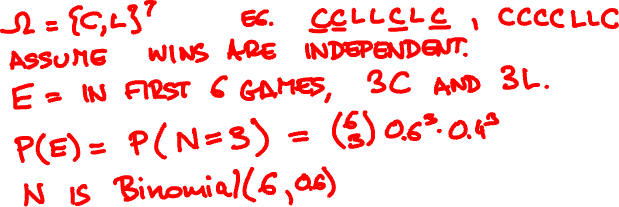 Ω = {C,L}⁷ EG. CCLLCLC , CCCCLLC
ASSUME WINS ARE INDEPENDENT.
E = IN FIRST 6 GAMES, 3C AND 3L.
P(E) = P(N=3) = (6 3) 0.6³ · 0.4³
N IS Binomial(6, 0.6)